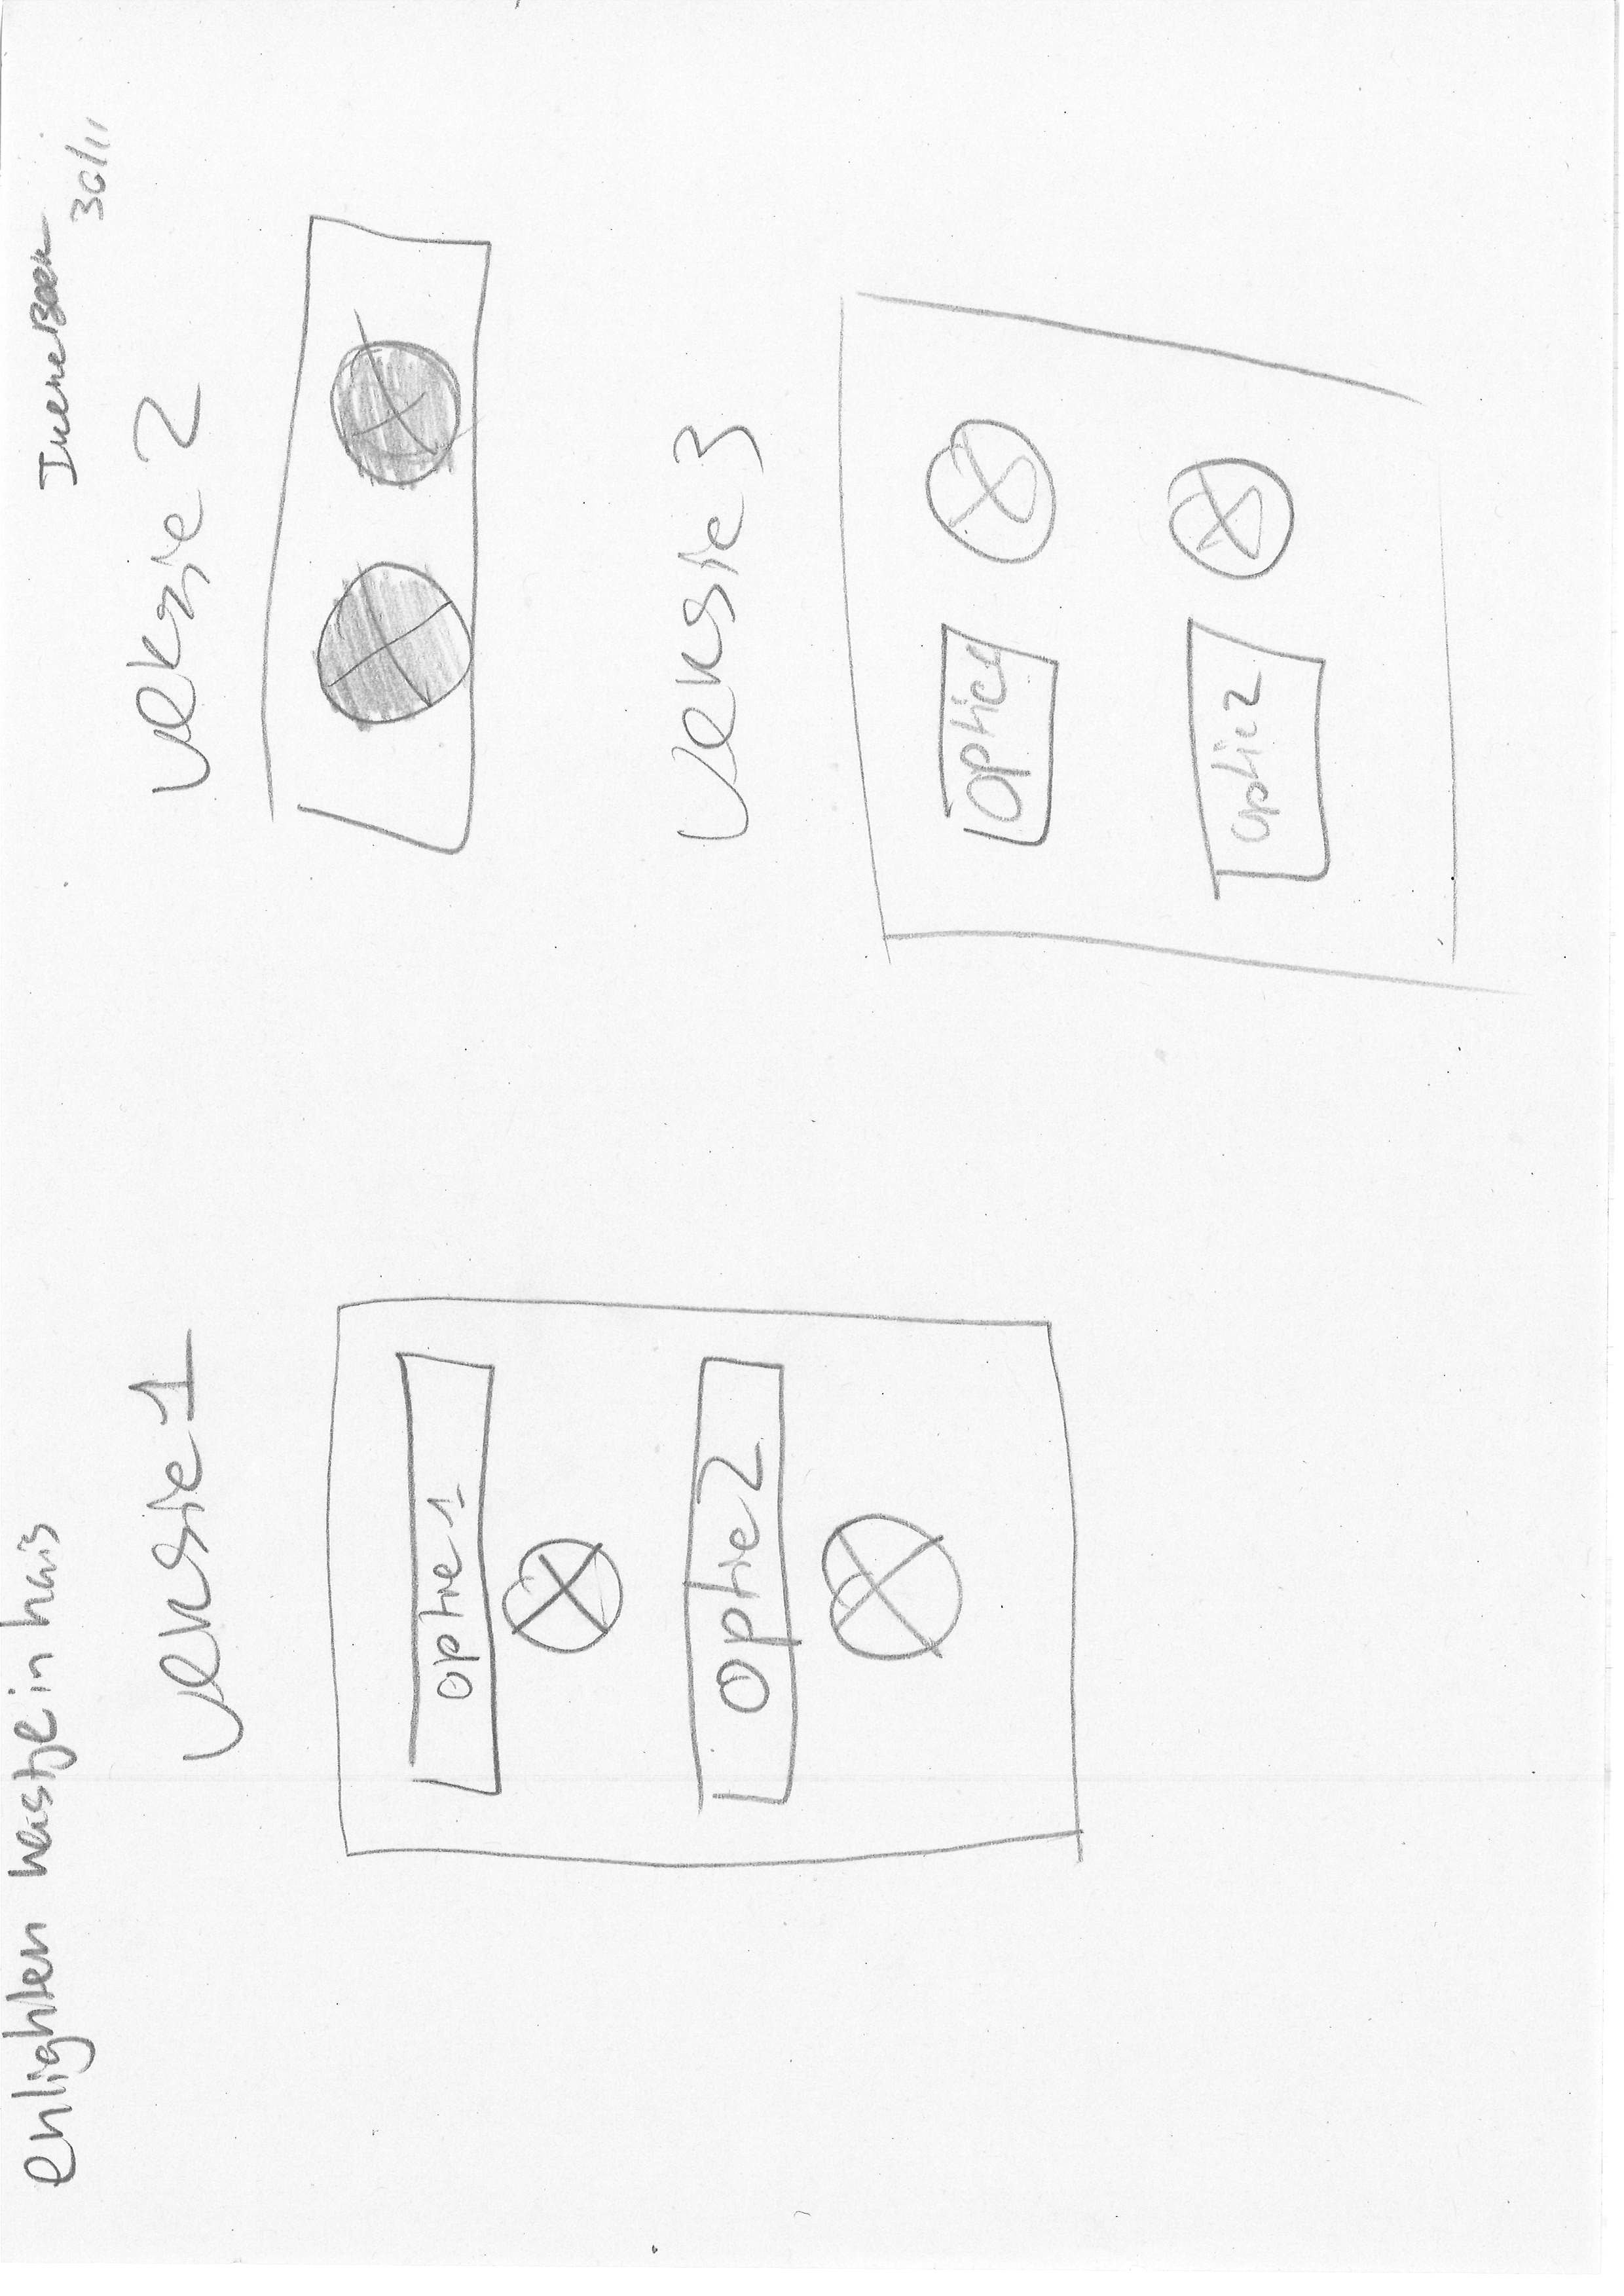 enlighten kastje in huis
Irene
30/11
versie 1
optie 1
optie 2
versie 2
versie 3
optie 1
optie 2